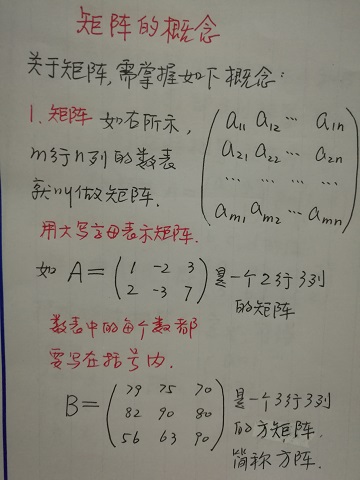 矩阵的概念
关于矩阵,需掌握如下概念:
1. 矩阵 如右所示,
m行n列的数表
就叫做矩阵.
a₁₁ a₁₂ … a₁ₙ
a₂₁ a₂₂ … a₂ₙ
… … … …
aₘ₁ aₘ₂ … aₘₙ
用大写字母表示矩阵.
如 A = ( 1 -2 3
2 -3 7 ) 是一个2行3列
的矩阵
数表中的每个数都
要写在括号内.
79 75 70
B = ( 82 90 80 ) 是一个3行3列
56 63 90
的方矩阵.
简称方阵.